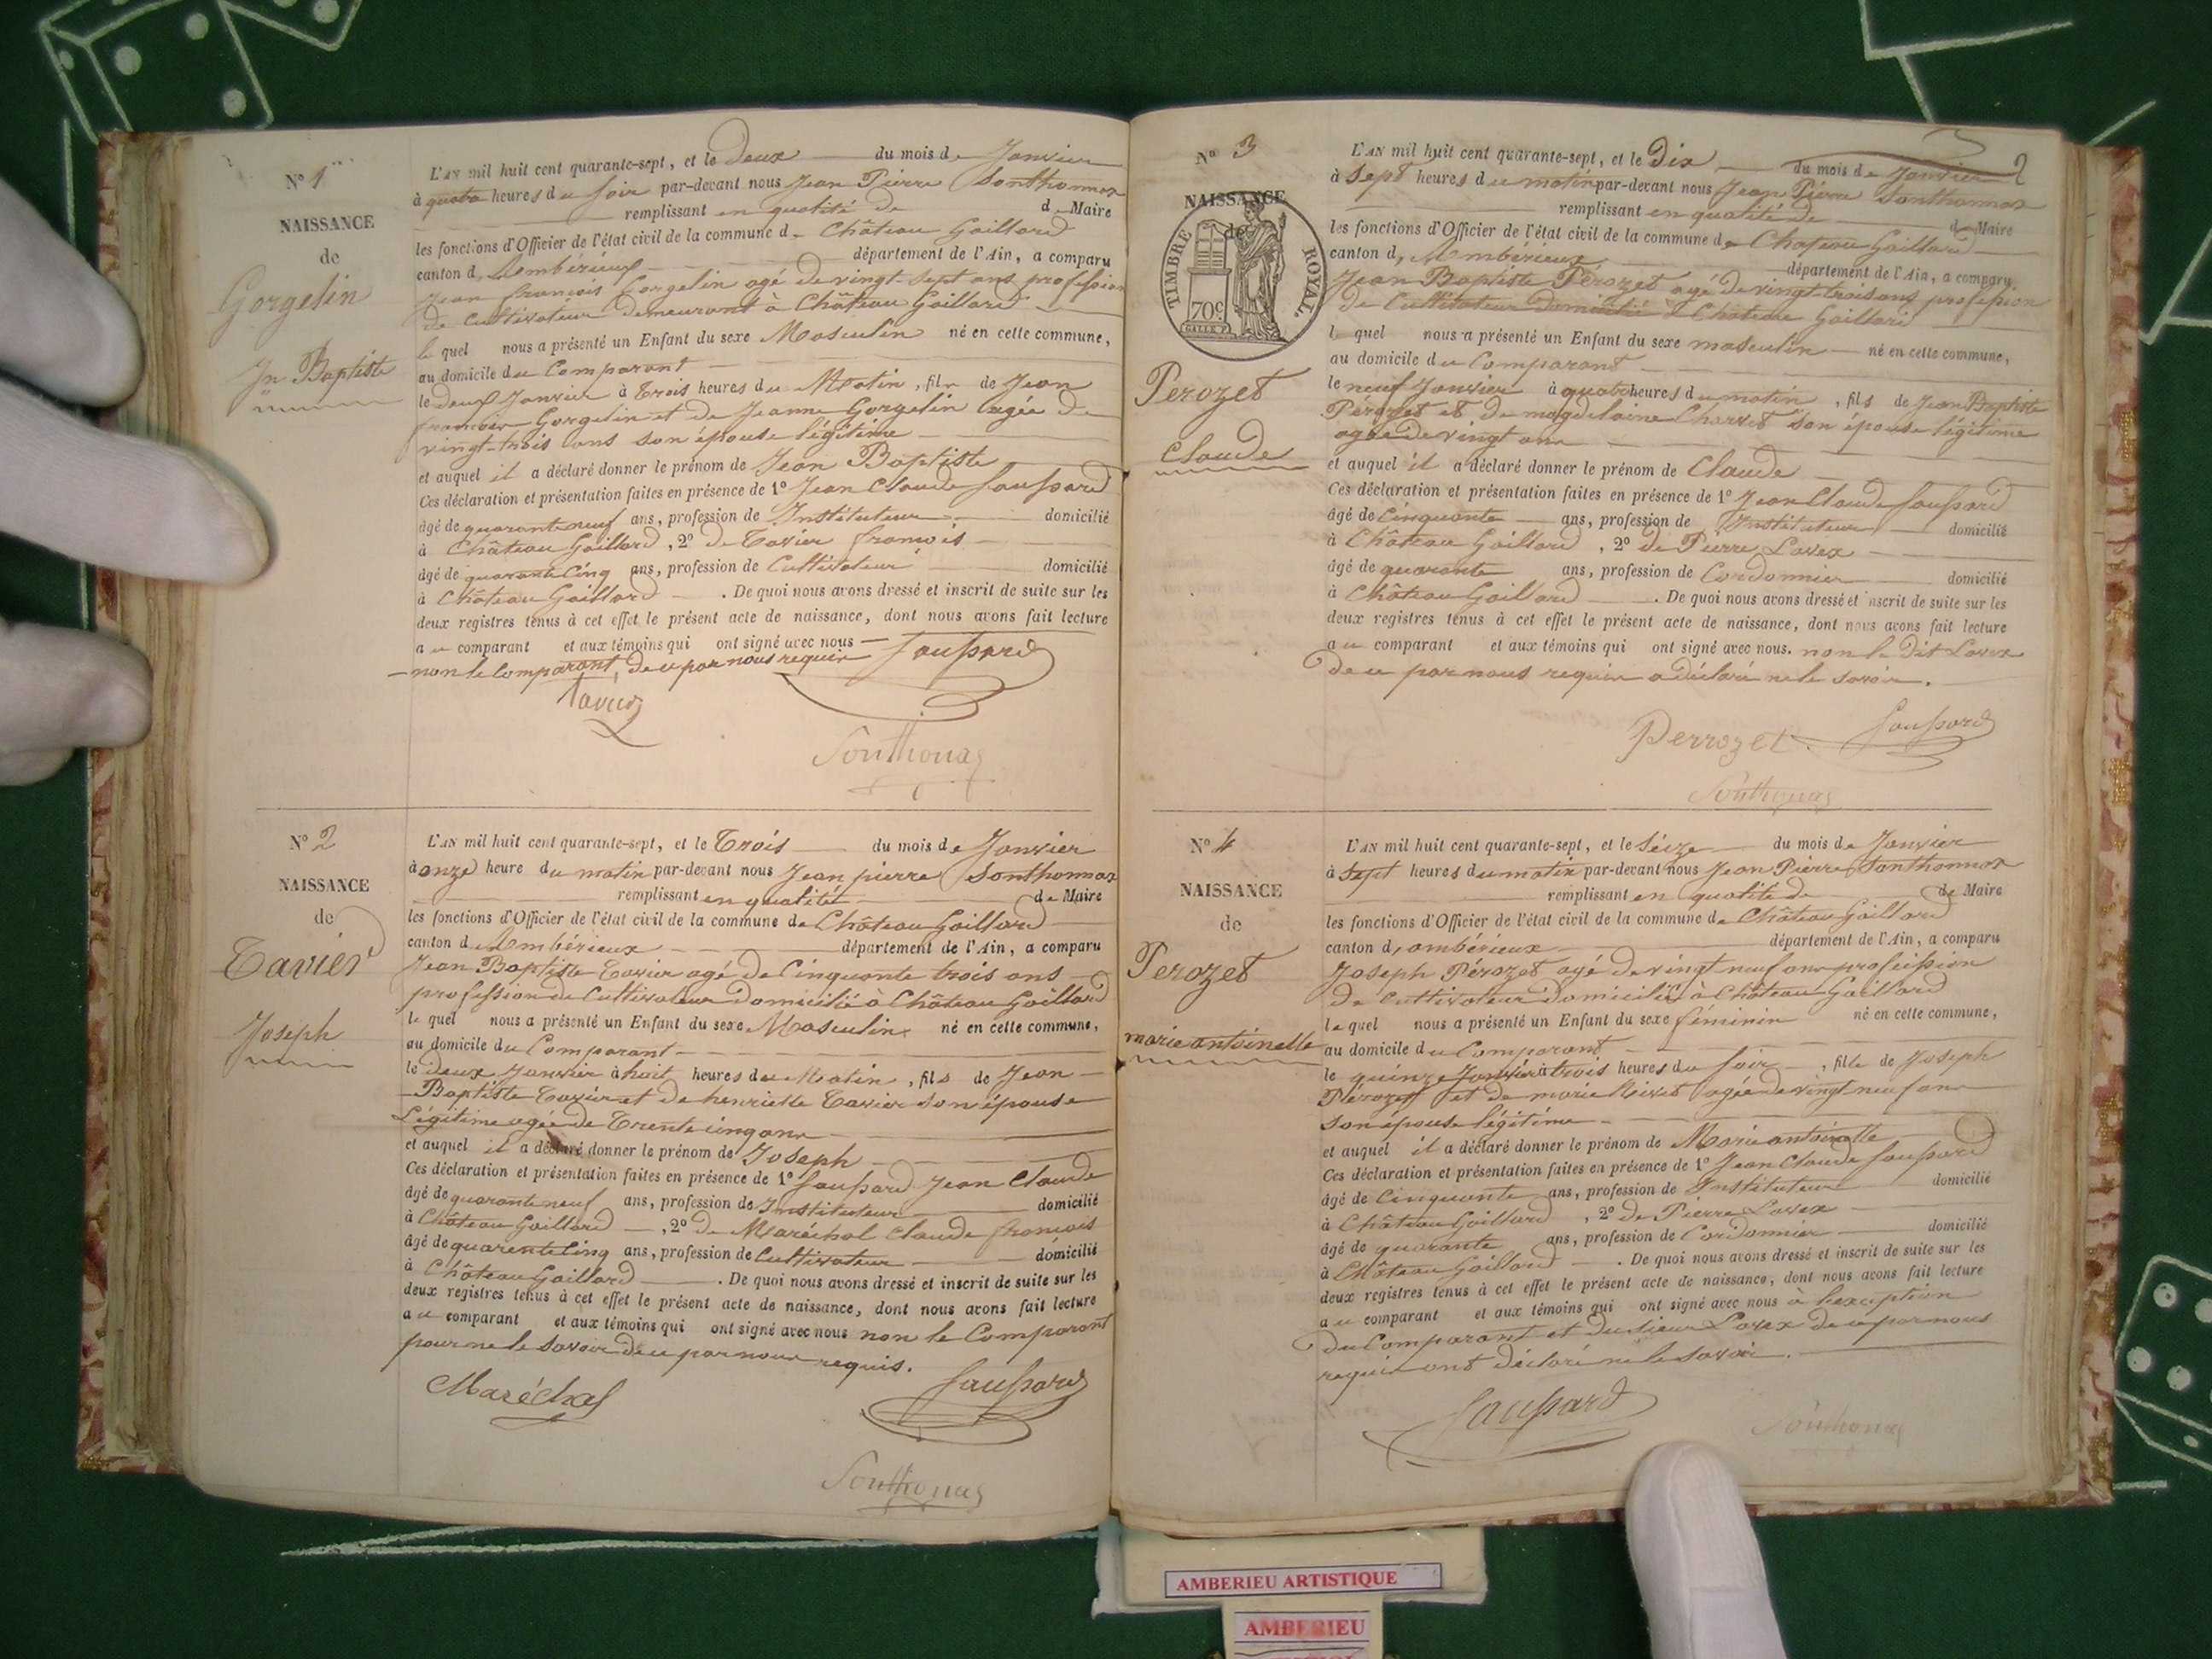 N° 1
NAISSANCE
de
Gorgelin
Jn Baptiste
L'AN mil huit cent quarante-sept, et le Deux du mois de Janvier
à quatre heures du soir par-devant nous Jean Pierre Sonthonnax
remplissant en qualité de de Maire
les fonctions d'Officier de l'état civil de la commune de Château Gaillard
canton d'Ambérieux département de l'Ain, a comparu
Jean François Gorgelin agé de vingt-sept ans profession
de Cultivateur demeurant à Château Gaillard
le quel nous a présenté un Enfant du sexe Masculin né en cette commune,
au domicile du Comparant
le deux Janvier à trois heures du Matin, fils de Jean
françois Gorgelin et de Jeanne Gorgelin agée de
vingt-trois ans son épouse légitime
et auquel il a déclaré donner le prénom de Jean Baptiste
Ces déclaration et présentation faites en présence de 1° Jean Claude Saussard
âgé de quarante neuf ans, profession de Instituteur domicilié
à Château Gaillard, 2° de Tavier françois
âgé de quarante Cinq ans, profession de Cultivateur domicilié
à Château Gaillard. De quoi nous avons dressé et inscrit de suite sur les
deux registres tenus à cet effet le présent acte de naissance, dont nous avons fait lecture
au comparant et aux témoins qui ont signé avec nous
non le Comparant, de ce par nous requis Saussard
Tavier
Sonthonax
N° 2
NAISSANCE
de
Tavier
Joseph
L'AN mil huit cent quarante-sept, et le Trois du mois de Janvier
à onze heure du matin par-devant nous Jean pierre Sonthonnax
remplissant en qualité de Maire
les fonctions d'Officier de l'état civil de la commune de Château Gaillard
canton d'Ambérieux département de l'Ain, a comparu
Jean Baptiste Tavier agé de Cinquante trois ans
profession de Cultivateur domicilié à Château Gaillard
le quel nous a présenté un Enfant du sexe Masculin né en cette commune,
au domicile du Comparant
le deux Janvier à huit heures du Matin, fils de Jean
Baptiste Tavier et de henriette Tavier son épouse
Légitime agée de Trente cinq ans
et auquel il a déclaré donner le prénom de Joseph
Ces déclaration et présentation faites en présence de 1° Saussard Jean Claude
âgé de quarante neuf ans, profession de Instituteur domicilié
à Château Gaillard, 2° de Maréchal Claude françois
âgé de quarente Cinq ans, profession de Cultivateur domicilié
à Château Gaillard. De quoi nous avons dressé et inscrit de suite sur les
deux registres tenus à cet effet le présent acte de naissance, dont nous avons fait lecture
au comparant et aux témoins qui ont signé avec nous non le Comparant
pour ne le savoir de ce par nous requis.
Maréchal Saussard
Sonthonax
2
N° 3
NAISSANCE
de
TIMBRE ROYAL
70c
Perozet
Claude
L'AN mil huit cent quarante-sept, et le Dix du mois de Janvier
à Sept heures du matin par-devant nous Jean Pierre Sonthonnax
remplissant en qualité de de Maire
les fonctions d'Officier de l'état civil de la commune de Chateau Gaillard
canton d'Ambérieux département de l'Ain, a comparu
Jean Baptiste Pérozet agé de vingt-trois ans profession
de Cultivateur domicilié à Château Gaillard
le quel nous a présenté un Enfant du sexe masculin né en cette commune,
au domicile du Comparant
le neuf Janvier à quatre heures du matin, fils de Jean Baptiste
Pérozet et de magdelaine Charvet son épouse légitime
agée de vingt ans
et auquel il a déclaré donner le prénom de Claude
Ces déclaration et présentation faites en présence de 1° Jean Claude Saussard
âgé de Cinquante ans, profession de Instituteur domicilié
à Château Gaillard, 2° de Pierre Lavex
âgé de quarante ans, profession de Cordonnier domicilié
à Château Gaillard. De quoi nous avons dressé et inscrit de suite sur les
deux registres tenus à cet effet le présent acte de naissance, dont nous avons fait lecture
au comparant et aux témoins qui ont signé avec nous. non le Dit Lavex
de ce par nous requis a déclaré ne le savoir.
Perrozet Saussard
Sonthonax
N° 4
NAISSANCE
de
Perozet
marie antoinette
L'AN mil huit cent quarante-sept, et le Séize du mois de Janvier
à Sept heures du matin par-devant nous Jean Pierre Sonthonnax
remplissant en qualité de de Maire
les fonctions d'Officier de l'état civil de la commune de Château Gaillard
canton d'ambérieux département de l'Ain, a comparu
Joseph Pérozet agé de vingt neuf ans profession
de Cultivateur domicilié à Château Gaillard
le quel nous a présenté un Enfant du sexe féminin né en cette commune,
au domicile du Comparant
le quinze Janvier à trois heures du soir, fille de Joseph
Pérozet et de marie agée de vingt neuf ans
son épouse légitime
et auquel il a déclaré donner le prénom de Marie antoinette
Ces déclaration et présentation faites en présence de 1° Jean Claude Saussard
âgé de Cinquante ans, profession de Instituteur domicilié
à Château Gaillard, 2° de Pierre Lavex
âgé de quarante ans, profession de Cordonnier domicilié
à Château Gaillard. De quoi nous avons dressé et inscrit de suite sur les
deux registres tenus à cet effet le présent acte de naissance, dont nous avons fait lecture
au comparant et aux témoins qui ont signé avec nous à l'exception
du Comparant et du sieur Lavex de ce par nous
requis ont déclaré ne le savoir.
Saussard Sonthonax
AMBERIEU ARTISTIQUE
AMBERIEU